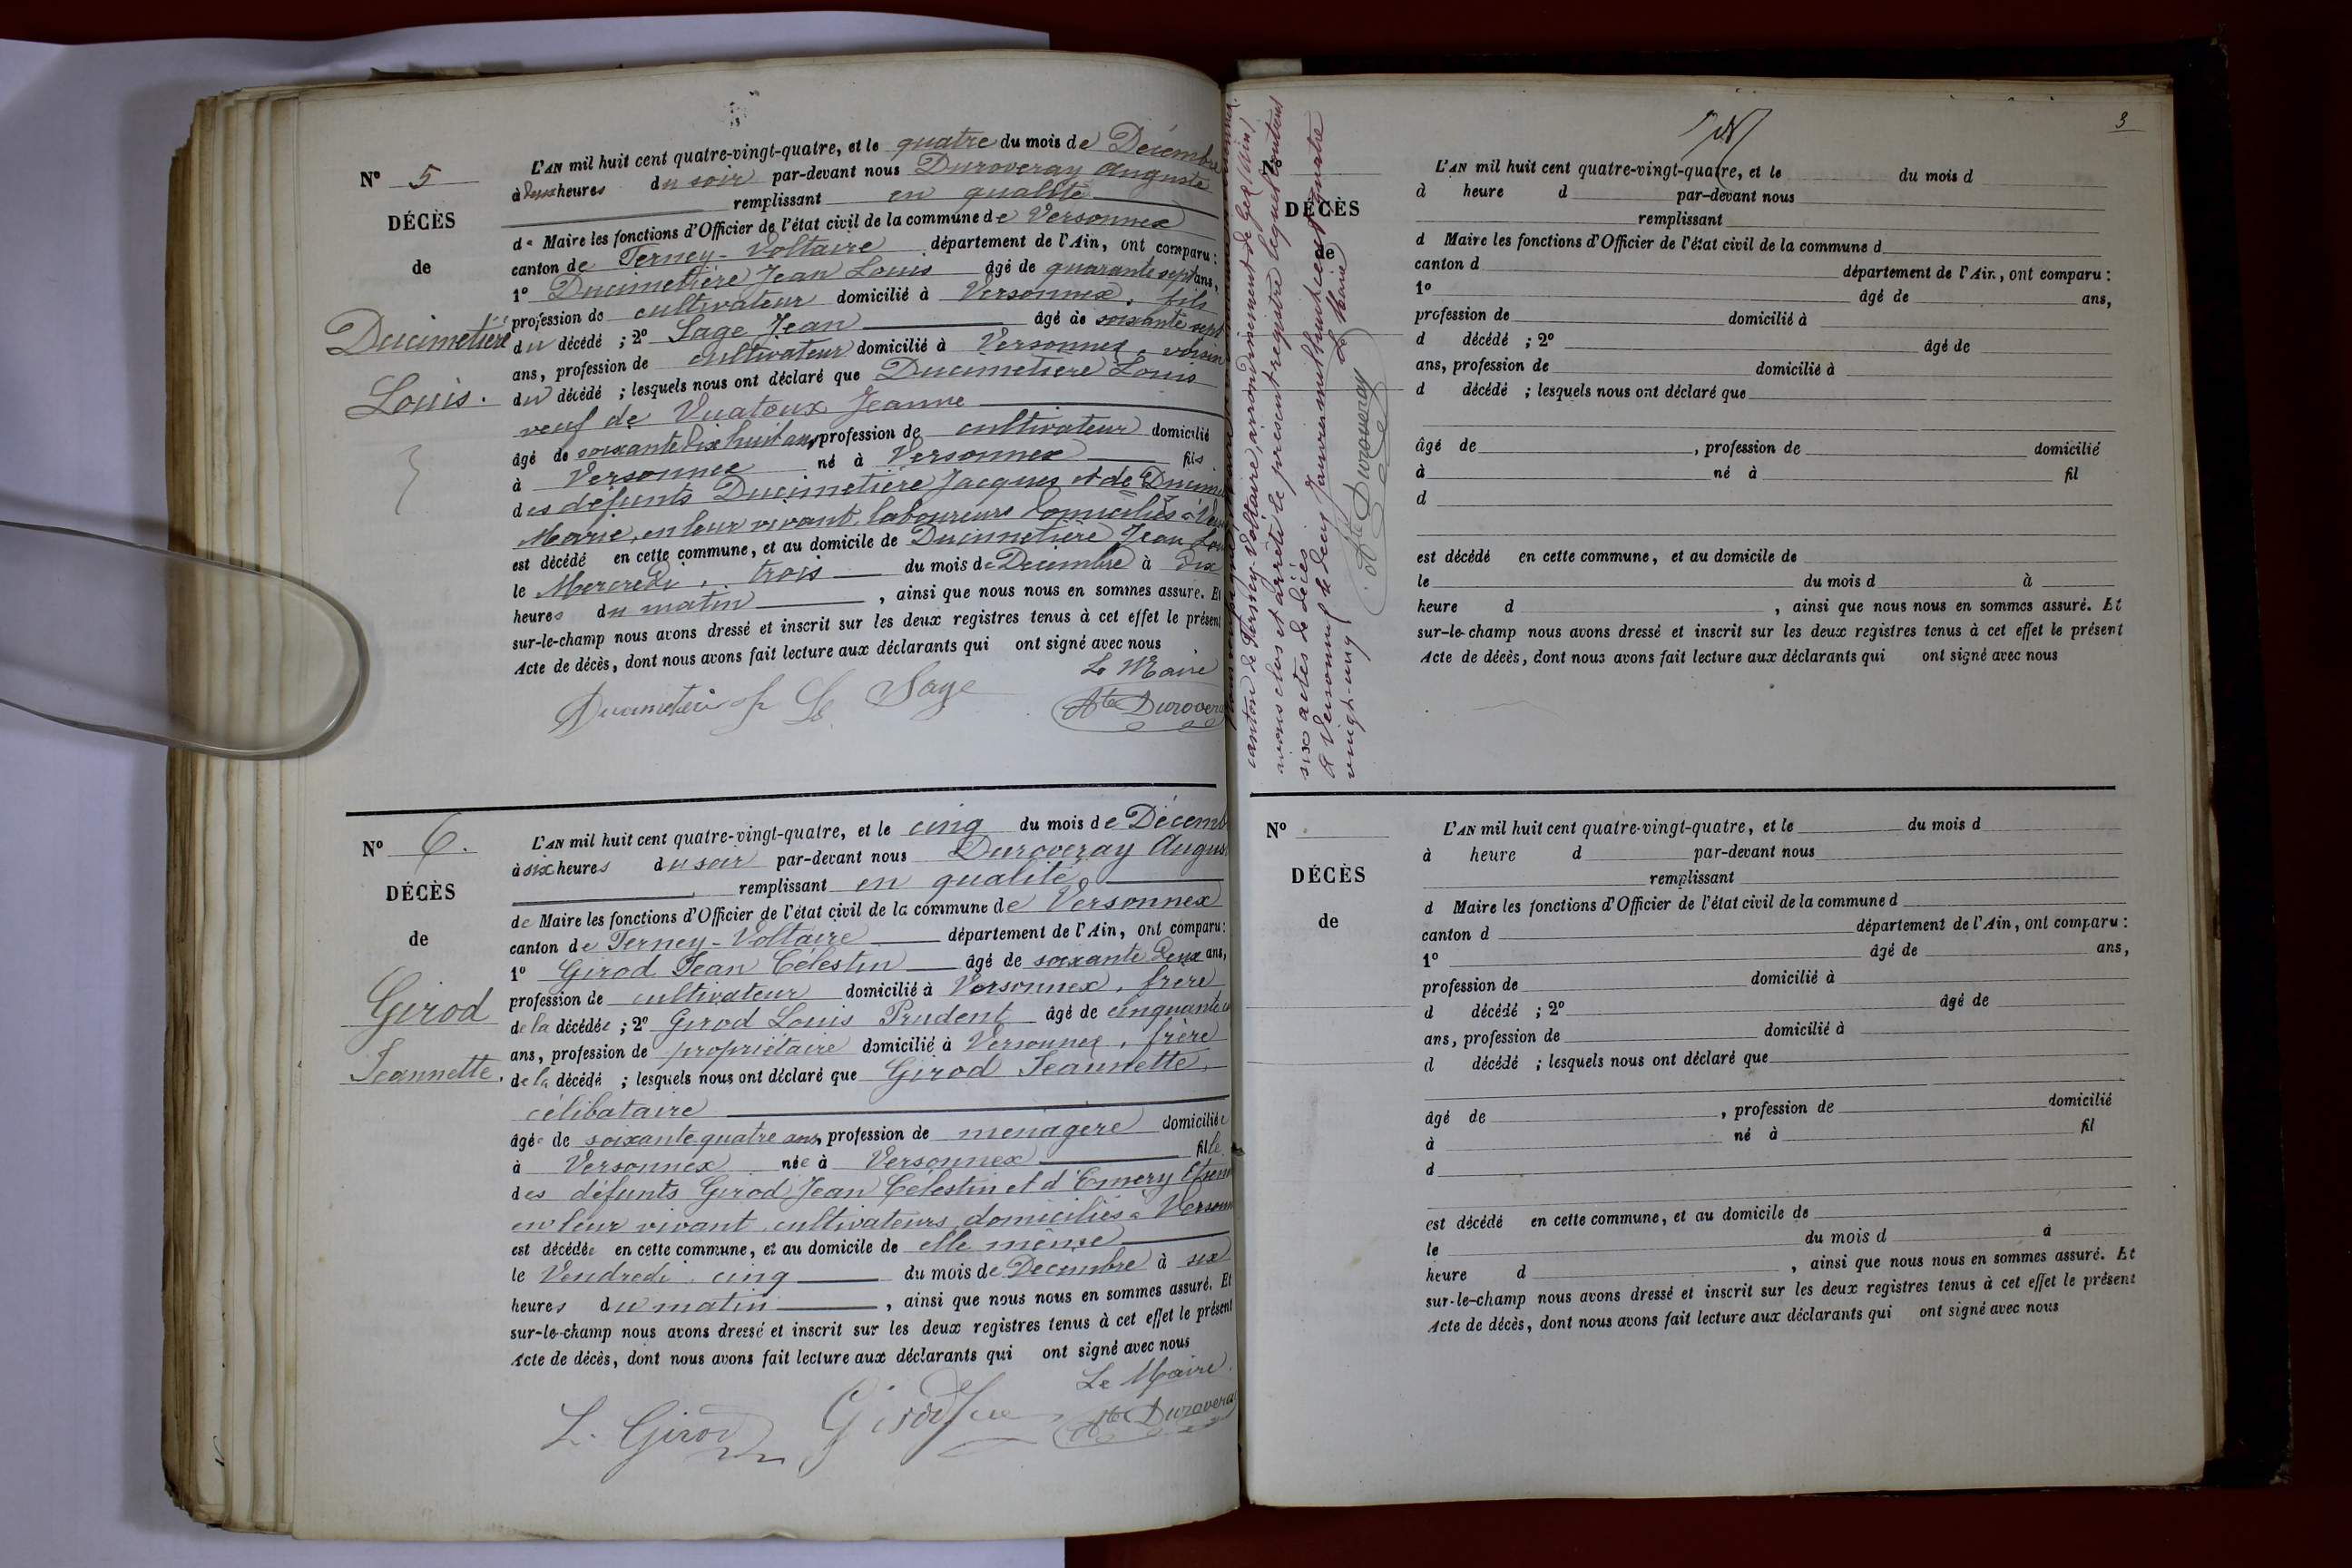 L'AN mil huit cent quatre-vingt-quatre, et le quatre du mois de Décembre
Nº 5
à deux heures du soir par-devant nous Duroveray Auguste
remplissant en qualité
DÉCÈS
de Maire les fonctions d'Officier de l'état civil de la commune de Versonnex
canton de Ferney-Voltaire département de l'Ain, ont comparu:
de
1º Ducimetière Jean Louis âgé de quarante sept ans,
profession de cultivateur domicilié à Versonnex, fils
Ducimetière
du décédé ; 2º Sage Jean âgé de soixante sept
ans, profession de cultivateur domicilié à Versonnex, voisin
Louis.
du décédé ; lesquels nous ont déclaré que Ducimetière Louis
veuf de Vuatoux Jeanne
âgé de soixante dix huit ans, profession de cultivateur domicilié
à Versonnex né à Versonnex fils
des défunts Ducimetière Jacques et de
Marie, en leur vivant, laboureurs domiciliés à
est décédé en cette commune, et au domicile de Ducimetière Jean
le Mercredi, trois du mois de Décembre à dix
heures du matin , ainsi que nous nous en sommes assuré. Et
sur-le-champ nous avons dressé et inscrit sur les deux registres tenus à cet effet le présent
Acte de décès, dont nous avons fait lecture aux déclarants qui ont signé avec nous
Le Maire
Sage
Ate Duroveray
L'AN mil huit cent quatre-vingt-quatre, et le cinq du mois de Décemb
Nº 6.
à six heures du soir par-devant nous Duroveray Augus
remplissant en qualité
DÉCÈS
de Maire les fonctions d'Officier de l'état civil de la commune de Versonnex
canton de Ferney-Voltaire département de l'Ain, ont comparu:
de
1º Girod Jean Célestin âgé de soixante deux ans,
profession de cultivateur domicilié à Versonnex, frère
Girod
de la décédée ; 2º Girod Louis Prudent âgé de cinquante
ans, profession de propriétaire domicilié à Versonnex, frère
Jeannette.
de la décédé ; lesquels nous ont déclaré que Girod Jeannette,
célibataire
âgée de soixante quatre ans, profession de ménagère domiciliée
à Versonnex née à Versonnex fille
des défunts Girod Jean Célestin et d'Emery
en leur vivant, cultivateurs, domiciliés à Versonn
est décédée en cette commune, et au domicile de elle même
le Vendredi, cinq du mois de Décembre à six
heures du matin , ainsi que nous nous en sommes assuré. Et
sur-le-champ nous avons dressé et inscrit sur les deux registres tenus à cet effet le présent
Acte de décès, dont nous avons fait lecture aux déclarants qui ont signé avec nous
Le Maire
L. Girod
Ate Duroveray
canton de Ferney-Voltaire, arrondissement de Gex (Ain)
avons clos et arrêté le présent registre lequel contient
six actes de décès
A Versonnex le deux Janvier mil huit cent quatre
vingt-cinq
Le Maire
Ate Duroveray
3
L'AN mil huit cent quatre-vingt-quatre, et le du mois d
à heure d par-devant nous
remplissant
DÉCÈS
d Maire les fonctions d'Officier de l'état civil de la commune d
de
canton d département de l'Ain, ont comparu :
1º âgé de ans,
profession de domicilié à
d décédé ; 2º âgé de
ans, profession de domicilié à
d décédé ; lesquels nous ont déclaré que
âgé de , profession de domicilié
à né à fil
d
est décédé en cette commune, et au domicile de
le du mois d à
heure d , ainsi que nous nous en sommes assuré. Et
sur-le-champ nous avons dressé et inscrit sur les deux registres tenus à cet effet le présent
Acte de décès, dont nous avons fait lecture aux déclarants qui ont signé avec nous
Nº
L'AN mil huit cent quatre-vingt-quatre, et le du mois d
à heure d par-devant nous
DÉCÈS
remplissant
d Maire les fonctions d'Officier de l'état civil de la commune d
de
canton d département de l'Ain, ont comparu :
1º âgé de ans,
profession de domicilié à
d décédé ; 2º âgé de
ans, profession de domicilié à
d décédé ; lesquels nous ont déclaré que
âgé de , profession de domicilié
à né à fil
d
est décédé en cette commune, et au domicile de
le du mois d à
heure d , ainsi que nous nous en sommes assuré. Et
sur-le-champ nous avons dressé et inscrit sur les deux registres tenus à cet effet le présent
Acte de décès, dont nous avons fait lecture aux déclarants qui ont signé avec nous